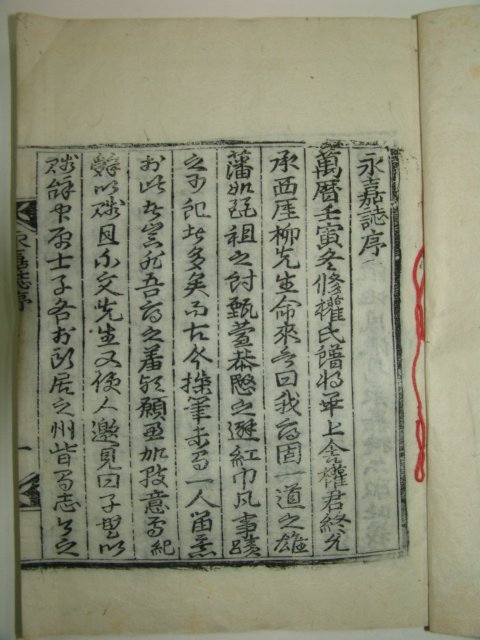 永嘉誌序
萬暦壬寅冬修權氏譜將畢上舍權君終允
承西厓柳先生命來言曰我府固一道之雄
藩如麗祖之討甄萱恭愍之避紅巾凡事蹟
之可記者多矣而古今操筆未有一人留意
於此者豈非吾府之羞歟願亟加致意焉紀
辭以疎且不文先生又使人邀見曰子毋以
疎辭中原士子各於所居之州皆有志公之
永嘉誌序
一